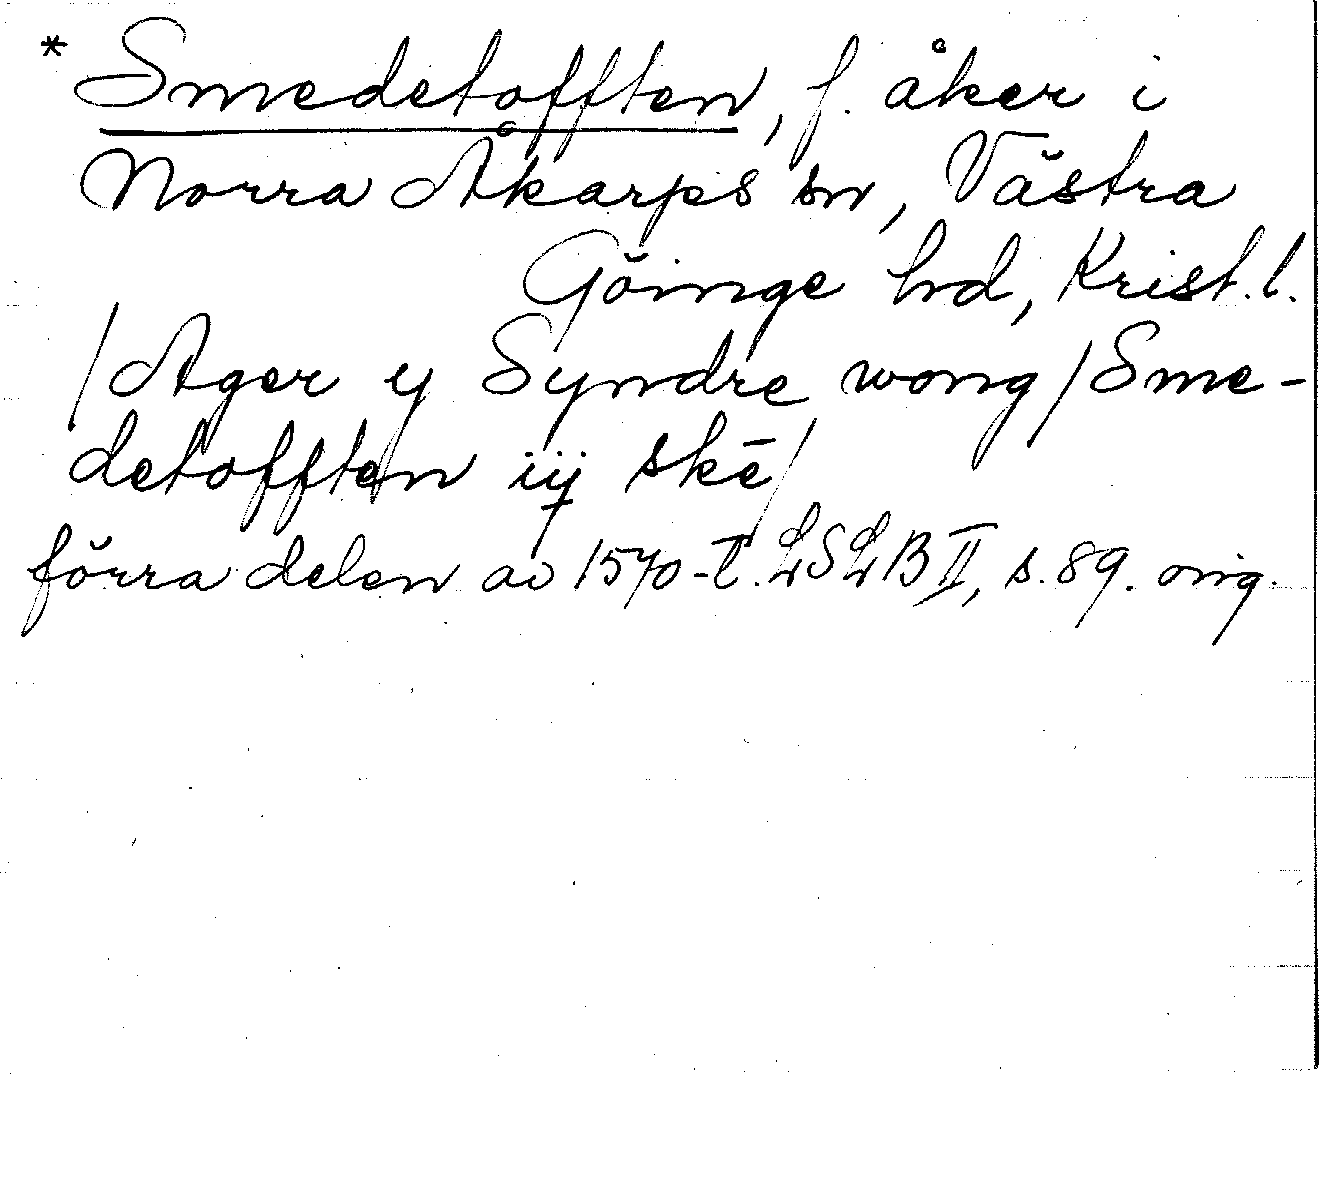 * Smedetofften, f. åker i
Norra Åkarps sn, Västra
Göinge hd, Krist. l.
/Ager y Syndre wong/ Sme-
detofften iij skē/
förra delen av 1570-t. LSLB II, s. 89. orig.